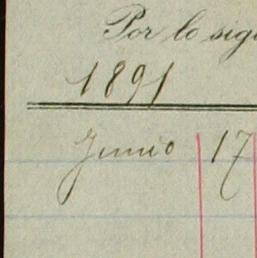 Por lo sigu
1891
Junio 17